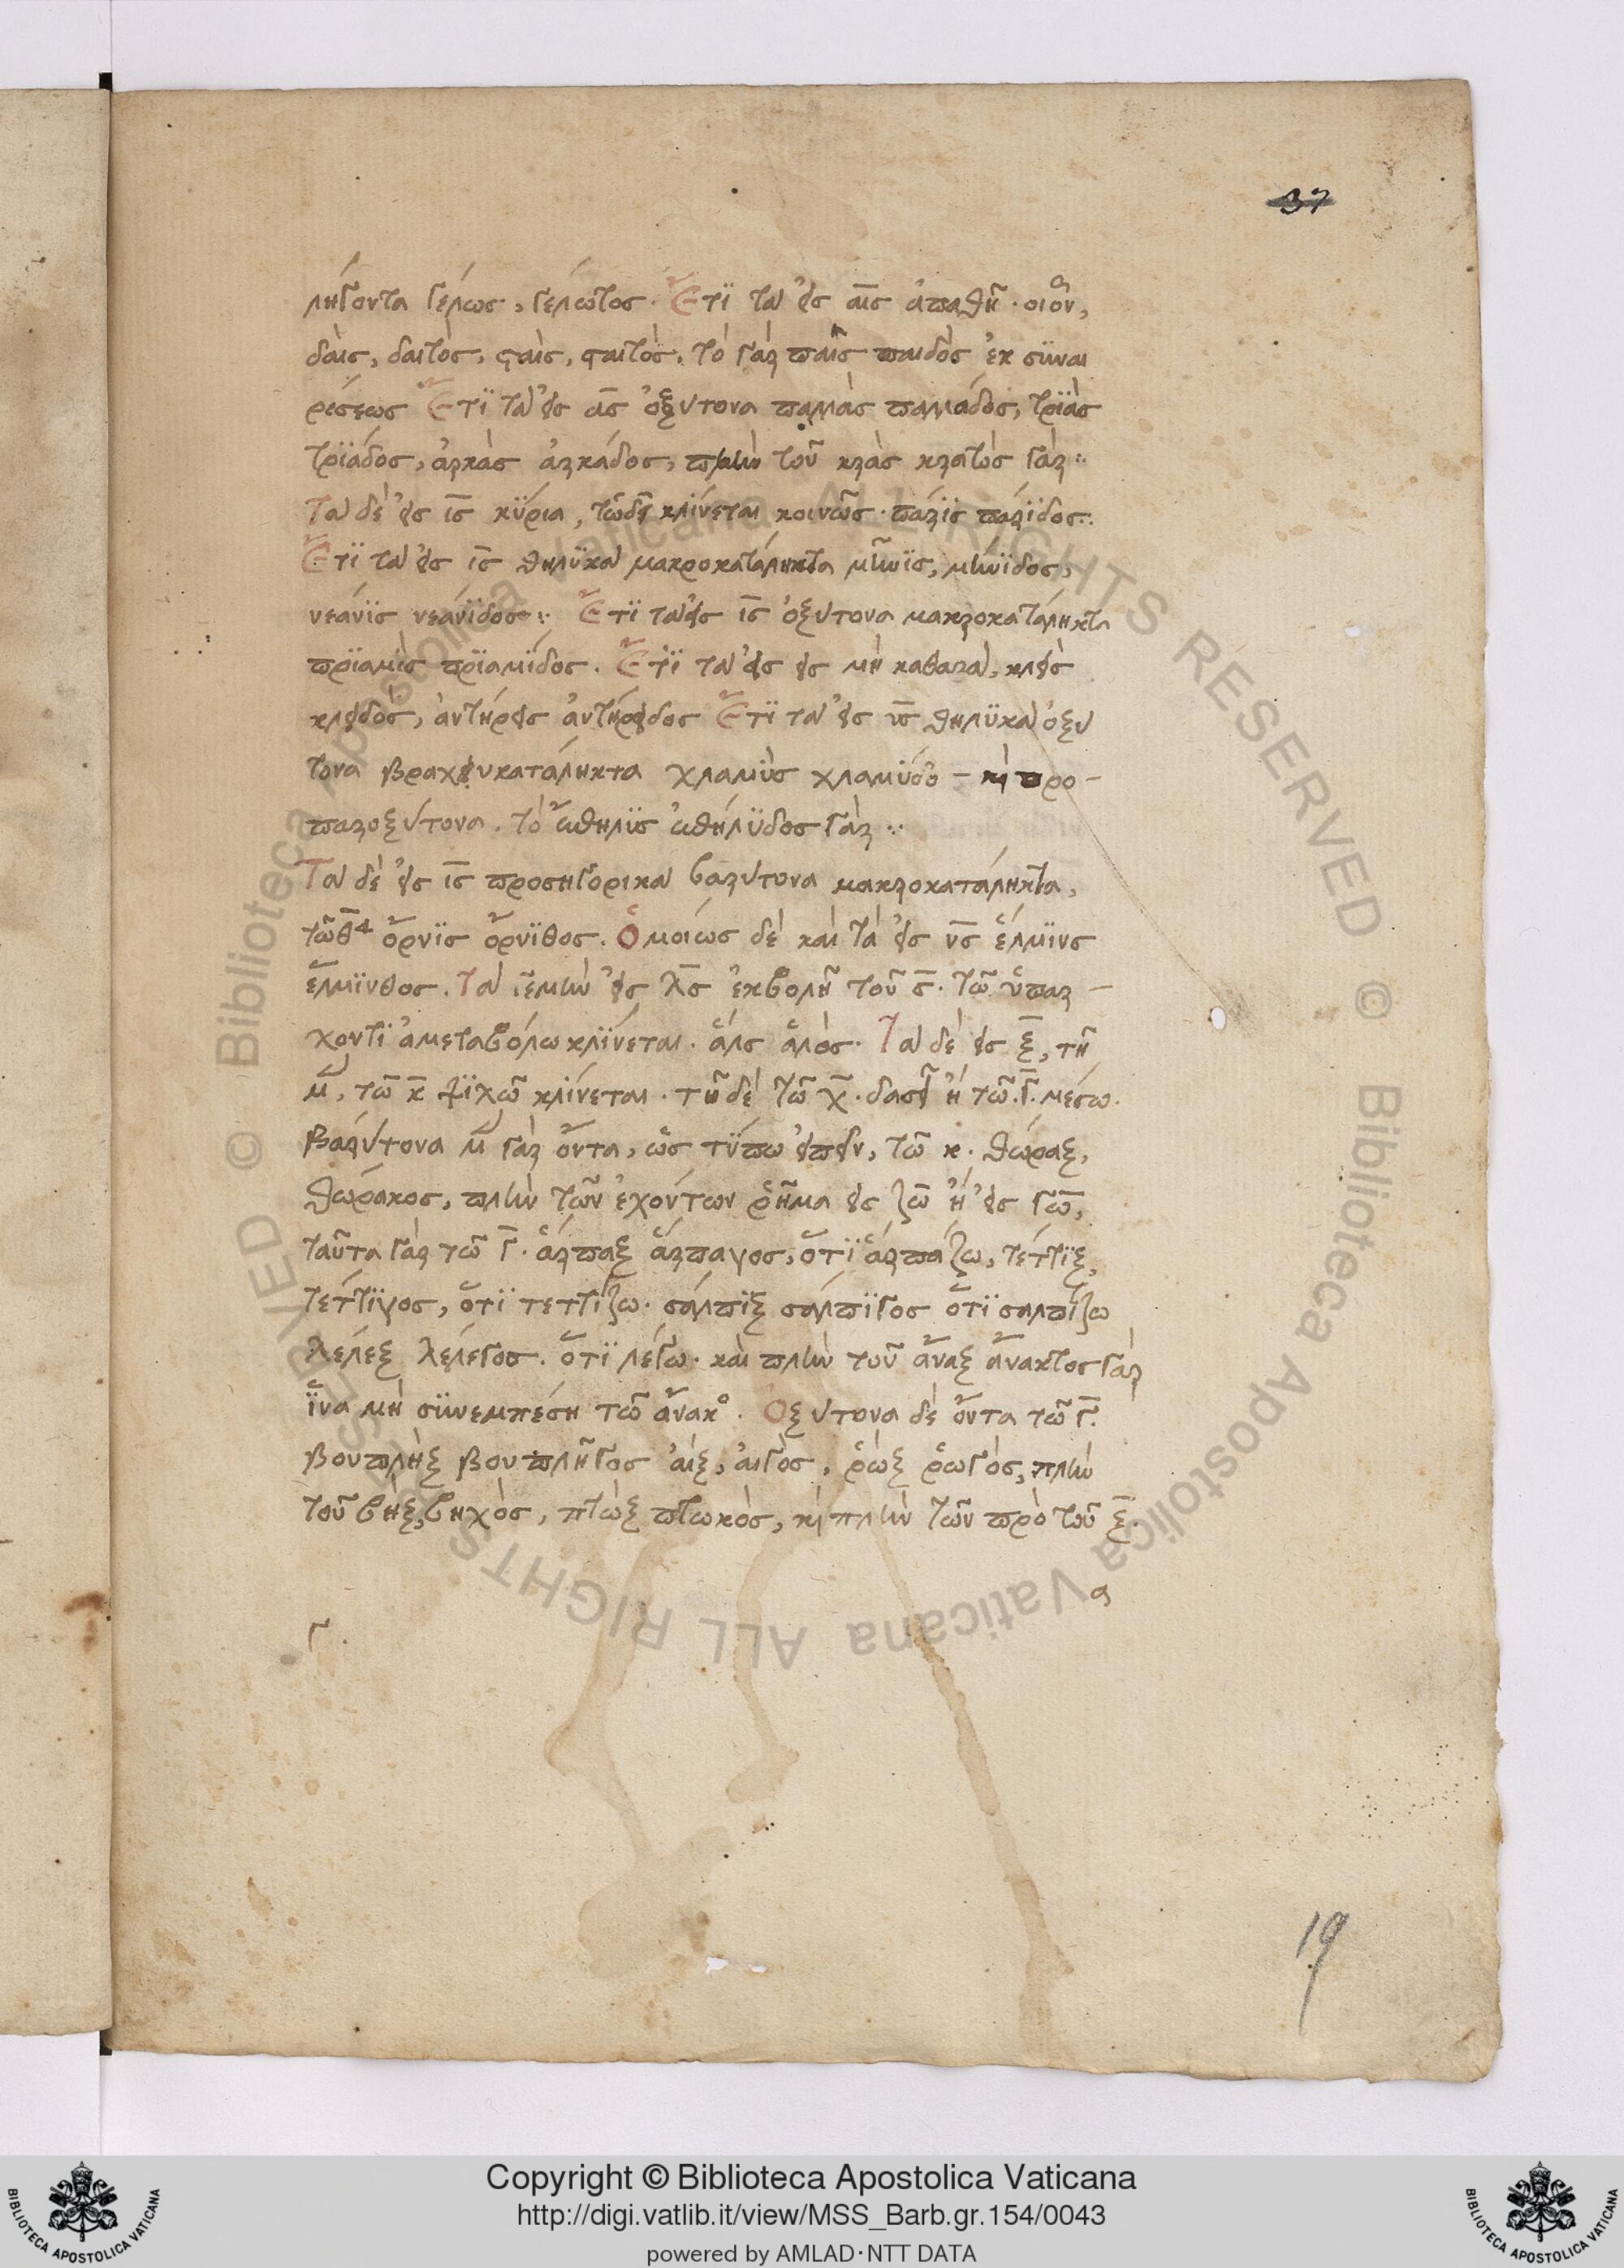 37
λήγοντα γέλως, γέλωτος. Ἔτϊ τὰ εἰς αις ἀπαθῆ. οἷον,
δαὶς, δαιτὸς, ςαὶς, ςαιτὸς, τὸ γὰρ παῖς παιδὸς ἐκ σϋναι
ρέσεως Ἔτϊ τὰ εἰς ας ὀξύτονα παλλὰς παλλάδος, τρϊὰς
τρϊάδος, ἀρκὰς ἀρκάδος, πλὴν τοῦ κρὰς κρατὸς γάρ:
Τὰ δὲ εἰς ις κύρια, τῶ δε κλίνεται κοινῶς. πάρϊς πάρϊδος:
Ἔτϊ τὰ εἰς ις θηλϋκὰ μακροκατάληκτα μῆνϊς, μήνϊδος,
νεάνϊς νεάνϊδος: Ἔτϊ τὰ εἰς ις ὀξύτονα μακροκατάληκτα
πρϊαμὶς πρϊαμίδος. Ἔτϊ τὰ εἰς εις μὴ καθαρὰ, κλεὶς
κλειδὸς, ἀντήρεις ἀντήρειδος Ἔτϊ τὰ εἰς υς θηλϋκὰ ὀξύ
τονα βραχυκατάληκτα χλαμὺς χλαμύδο – κὶ προ –
παροξύτονα. τὸ ἄθηλϋς ἀθήλϋδος γάρ:
Τὰ δὲ εἰς ις προσηγορικὰ βαρύτονα μακροκατάληκτα,
τῶ θ ὄρνϊς ὄρνϊθος. Ὁμοίως δὲ καὶ τὰ εἰς νς ἕλμϊνς
ἕλμϊνθος. Τὰ μὲν εἰς λς ἐκβολῆ τοῦ ς. τῶ ὑπάρ –
χοντϊ ἀμεταβόλω κλίνεται. ἅλς ἁλός. Τὰ δὲ εἰς ξ, πῆ
μ, τῶ κ ψϊλῶ κλίνεται. πῆ δὲ τῶ χ. δασεῖ ἢ τῶ. γ. μέσω.
βαρύτονα μ γὰρ ὄντα, ὡς τύπω εἰπεῖν, τῶ κ. θώραξ,
θώρακος, πλὴν τῶν ἐχόντων ῥῆμα εἰς ζω ἢ εἰς γω,
ταῦτα γὰρ τῶ γ. ἅρπαξ ἅρπαγος, ὅτϊ ἁρπάζω, τέττϊξ,
τέττϊγος, ὅτϊ τεττίζω. σάλπϊξ σάλπϊγος ὅτϊ σαλπίζω
λέλεξ λέλεγος. ὅτϊ λέγω. καὶ πλὴν τοῦ ἄναξ ἄνακτος γὰρ
ἵνα μὴ σϋνεμπέση τῶ ἄνακο. Ὀξύτονα δὲ ὄντα τῶ γ.
βουπλὴξ βουπλῆγος αἲξ, αἰγὸς, ῥὼξ ῥωγὸς, πλὴν
τοῦ βὴξ, βηχὸς, πτὼξ πτωκὸς, κὶ πλὴν τῶν πρὸ τοῦ ξ.
γ.
19
Copyright © Biblioteca Apostolica Vaticana
http://digi.vatlib.it/view/MSS_Barb.gr.154/0043
powered by AMLAD·NTT DATA
BIBLIOTECA APOSTOLICA VATICANA
BIBLIOTECA APOSTOLICA VATICANA